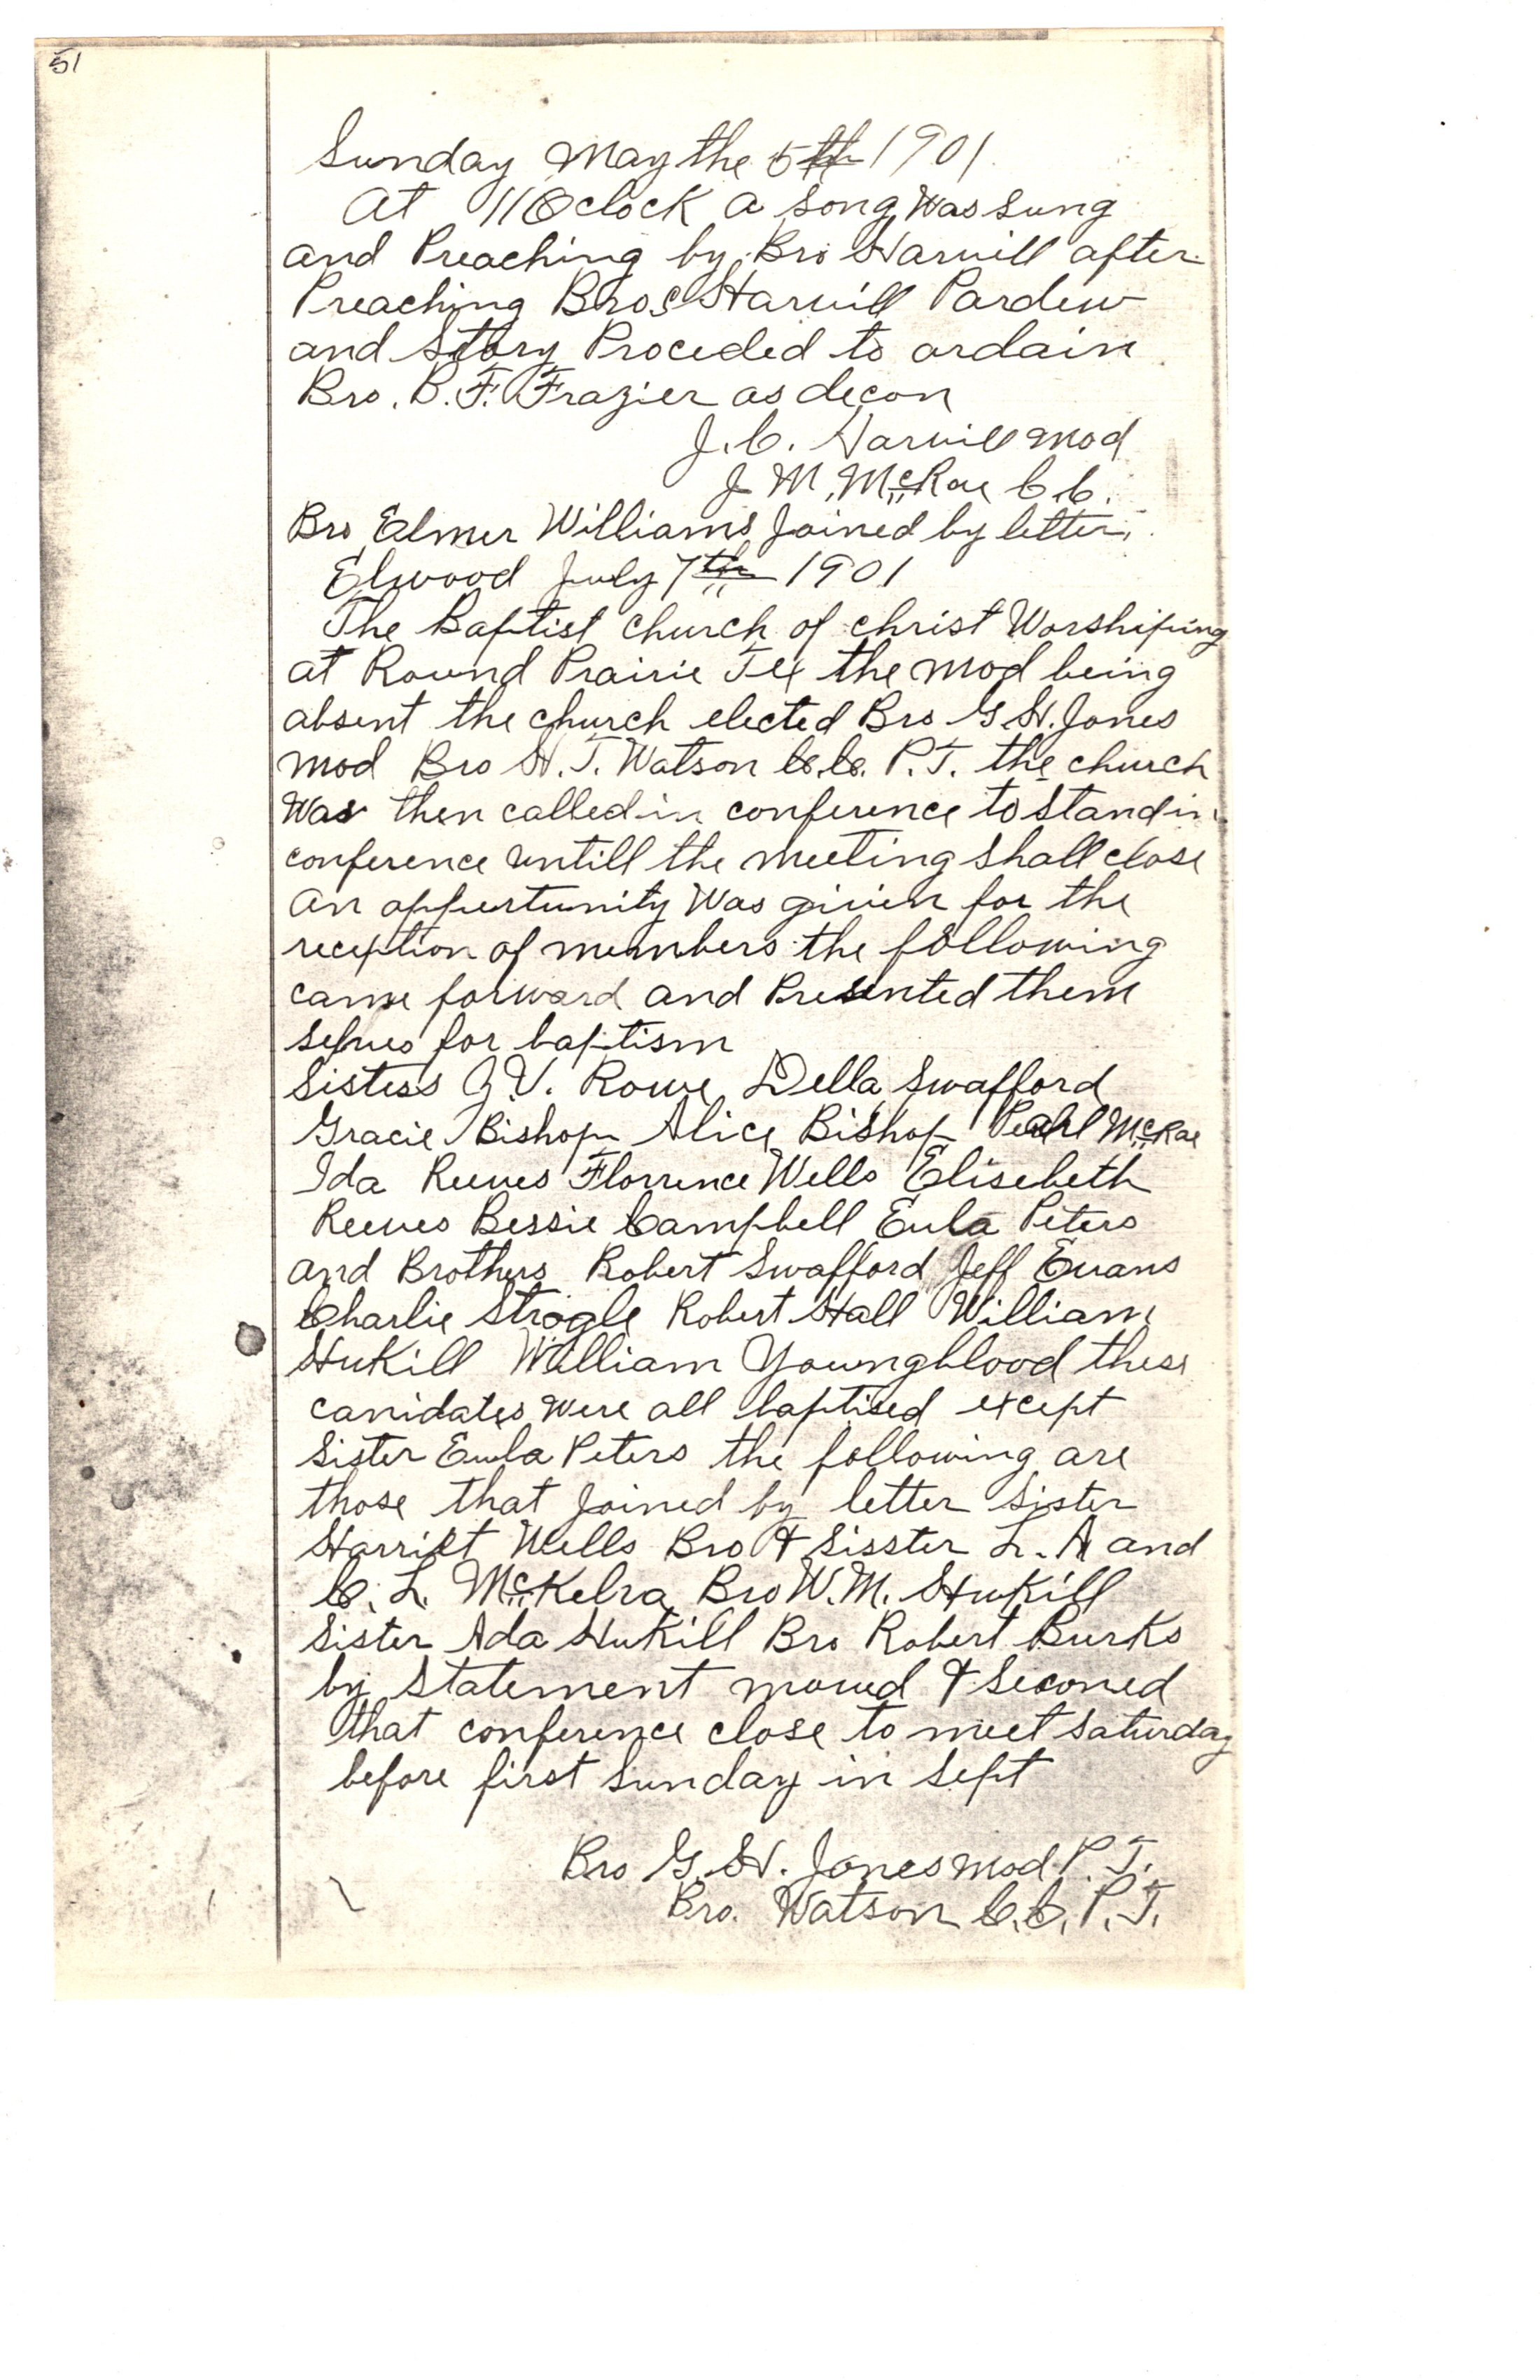 51
Sunday May the 5th 1901
At 11 Oclock a song was sung
and Preaching by Bro Harvill after
Preaching Bros Harvill Pardew
and Story Proceded to ordain
Bro. B. F. Frazier as decon
J. C. Harvill Mod
J M. McRae C. C.
Bro Elmer Williams Joined by letter,
Elwood July 7th 1901
The Baptist church of christ Worshiping
at Round Prairie Tex the mod being
absent the church elected Bro G H. Jones
mod Bro H. T. Watson C. C. P. T. the church
Was then called in conference to stand in
conference untill the meeting shall close
an oppertunity Was given for the
reception of members the following
came forward and Presented them
selves for baptism
Sisters J. V. Rowe Della Swafford
Gracie Bishop Alice Bishop Pearl McRae
Ida Reeves Florrence Wells Elisebeth
Reeves Bessie Campbell Eula Peters
and Brothers Robert Swafford Jeff Evans
Charlie Strogle Robert Hall William
Hukill William Youngblood these
canidates were all baptised except
Sister Eula Peters the following are
those that Joined by letter Sister
Harriet Wells Bro & Sisster L. A and
C. L. McKelra Bro W. M. Hukill
Sister Ada Hukill Bro Robert Burks
by Statement moved & seconed
that conference close to meet saturday
before first Sunday in Sept
Bro G. H. Jones mod P. T.
Bro. Watson C. C. P. T.